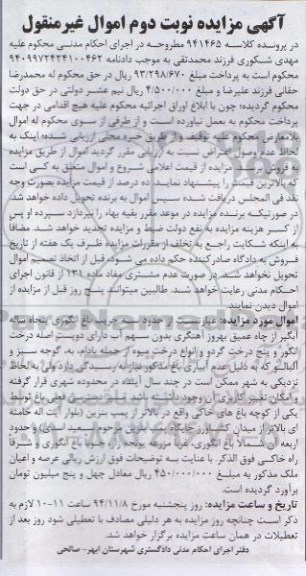 آگهی مزایده نوبت دوم اموال غیرمنقول
در پرونده کلاسه ۹۴۱۴۶۵ مطروحه در اجرای احکام مدنی محکوم علیه
مهدی شکوری فرزند محمدتقی به موجب دادنامه ۹۴۰۹۹۷۲۴۲۴۱۰۰۴۶۲
محکوم است به پرداخت مبلغ ۹۳/۲۹۸/۶۷۰ ریال در حق محکوم له محمدرضا
حقانی فرزند علیرضا و مبلغ ۴/۵۰۰/۰۰۰ ریال نیم عشر دولتی در حق دولت
محکوم گردیده؛ چون با ابلاغ اوراق اجرائیه محکوم علیه هیچ اقدامی در جهت
پرداخت محکوم به بعمل نیاورده است و از طرفی از سوی محکوم له اموال
بلامعارض محکوم علیه توقیف و از طریق خبره محلی ارزیابی شده؛ اینک به
لحاظ عدم وصول اعتراض نسبت به ارزیابی مقرر گردید اموال از طریق مزایده
به فروش برسد. مزایده از قیمت اعلامی شروع و اموال متعلق به کسی است
که بالاترین قیمت را پیشنهاد نماید. ده درصد از قیمت مزایده بصورت وجه
نقد فی المجلس دریافت شده سپس اموال به برنده تحویل داده خواهد شد.
در صورتیکه برنده مزایده در موعد مقرر بقیه بهاء را نپردازد سپرده او پس
از کسر هزینه مزایده به نفع دولت ضبط و مزایده تجدید خواهد شد. مضافا
به اینکه شکایت راجع به تخلف از مقررات مزایده ظرف یک هفته از تاریخ
فروش به دادگاه صادرکننده حکم داده می شود، قبل از اتخاذ تصمیم اموال
تحویل نخواهد شد. در صورت عدم مشتری مفاد ماده ۱۳۱ از قانون اجرای
احکام مدنی رعایت خواهد شد. طالبین میتوانند پنج روز قبل از مزایده از
اموال دیدن نمایند.
اموال مورد مزایده: عبارتست از حدود سه جریب باغ انگوری پنجاه ساله
آبگیر از چاه عمیق بهروز آهنگری بدون سهم آب دارای دویست اصله درخت
انگور و پنج درخت گردو و انواع درخت میوه از جمله بادام، به، گوجه سبز و
آلبالو که به دلیل عدم آبیاری باغ مذکور نیاز به رسیدگی دارد ولی به لحاظ
نزدیکی به شهر ممکن است در چند سال آینده در محدوده شهری قرار گرفته
و امکان تغییر کاربری آن وجود داشته باشد.
یکی از کوچه باغ های خاکی واقع در بالاتر از پمپ بنزین (بلوار آیت اله خامنه
ای بالاتر از میدان کشاورز جایگاه پمپ بنزین مرحوم سعید اسدی) و حدود
اربعه آن شمالاً باغ انگوری،
راه خاکی فوق الذکر. با عنایت به توضیحات فوق ارزش ریالی عرصه و اعیان
ملک مذکور به مبلغ ۴۵۰/۰۰۰/۰۰۰ ریال معادل چهل و پنج میلیون تومان
برآورد گردیده است.
تاریخ و ساعت مزایده: روز پنجشنبه مورخ ۹۴/۱۱/۸ ساعت ۱۱-۱۰ لازم به
ذکر است چنانچه روز مزایده به هر دلیلی مصادف با تعطیلی شود روز بعد از
تعطیلات در همان ساعت مزایده برگزار خواهد شد.
دفتر اجرای احکام مدنی دادگستری شهرستان ابهر- صالحی